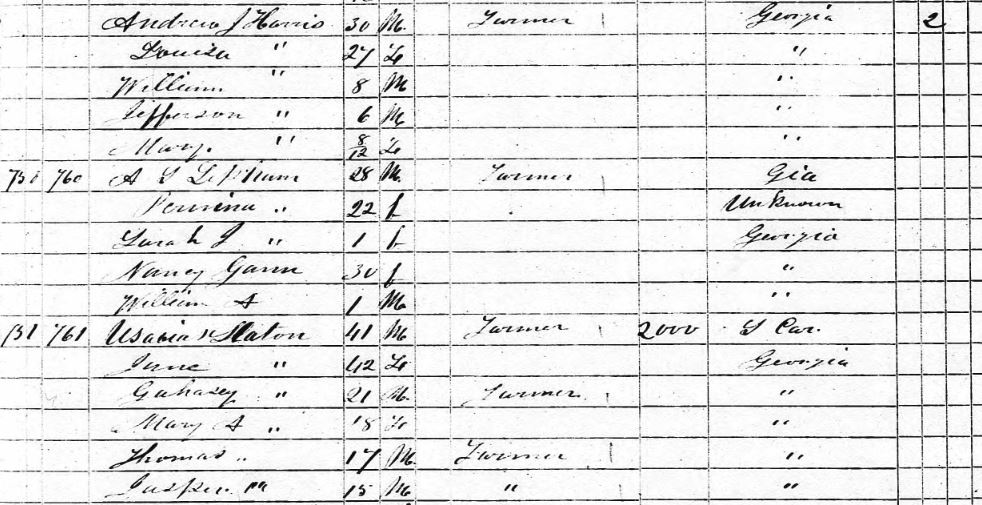 Andrew J Harris 30 M. Farmer Georgia 2
Louisa " 27 Fe "
William " 8 M "
Jefferson " 6 M "
Mary " 8/12 Fe "
760 A S 28 M. Farmer Gia
" 22 f Unknown
Sarah J " 1 f Georgia
Nancy Gann 30 f "
William A 1 M "
761 Slaton 41 M Farmer 2000 S Car.
Jane " 42 Fe Georgia
" 21 M. Farmer "
Mary A " 18 Fe "
Thomas " 17 M Farmer "
Jasper " 15 M " "